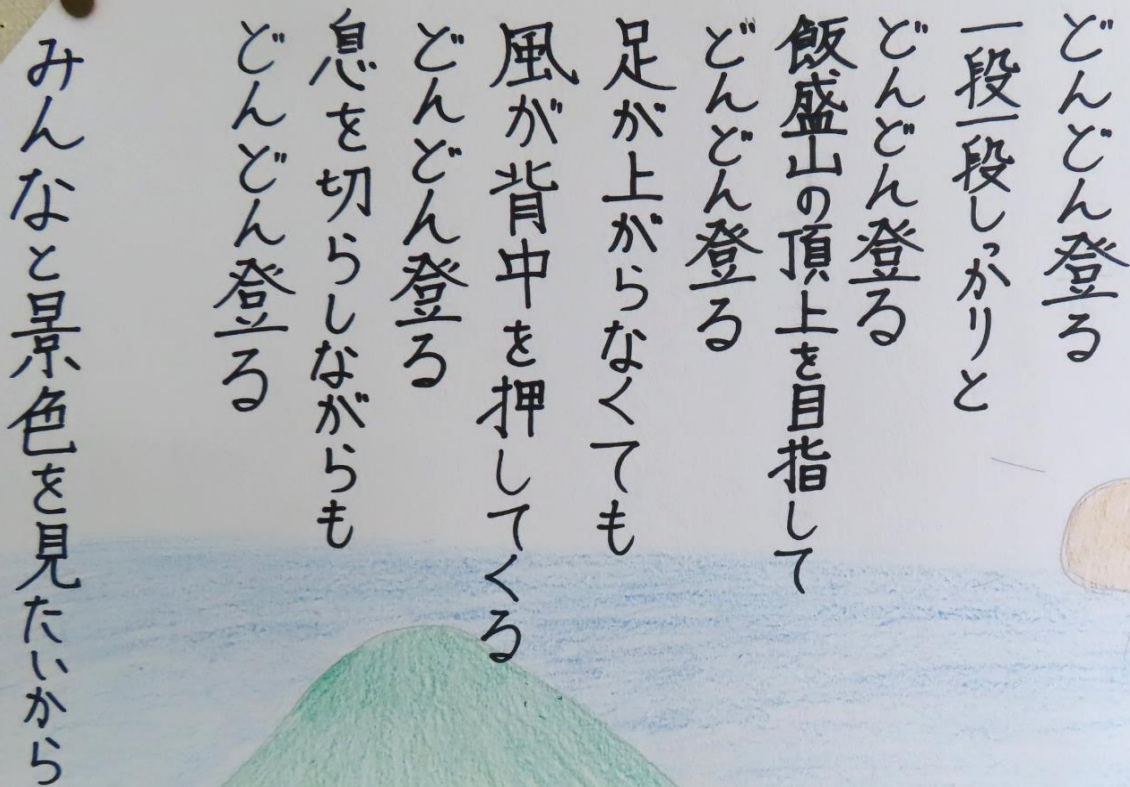 どんどん登る
一段一段しっかりと
どんどん登る
飯盛山の頂上を目指して
どんどん登る
足が上がらなくても
風が背中を押してくる
どんどん登る
息を切らしながらも
どんどん登る
みんなと景色を見たいから